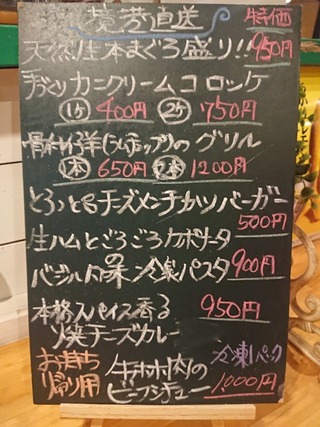 荒芳直送 特価
天然生本まぐろ盛り!! 950円
手づくりカニクリームコロッケ
1ケ 400円 2ケ 750円
骨付仔羊(ラムチョップ)のグリル
1本 650円 2本 1200円
とろ〜りチーズメンチカツバーガー
500円
生ハムとごろごろカポナータ
バジル風味冷製パスタ 900円
本格スパイス香る 950円
焼チーズカレー
お持ち 牛ホホ肉の 冷凍パック
帰り用 ビーフシチュー 1,000円